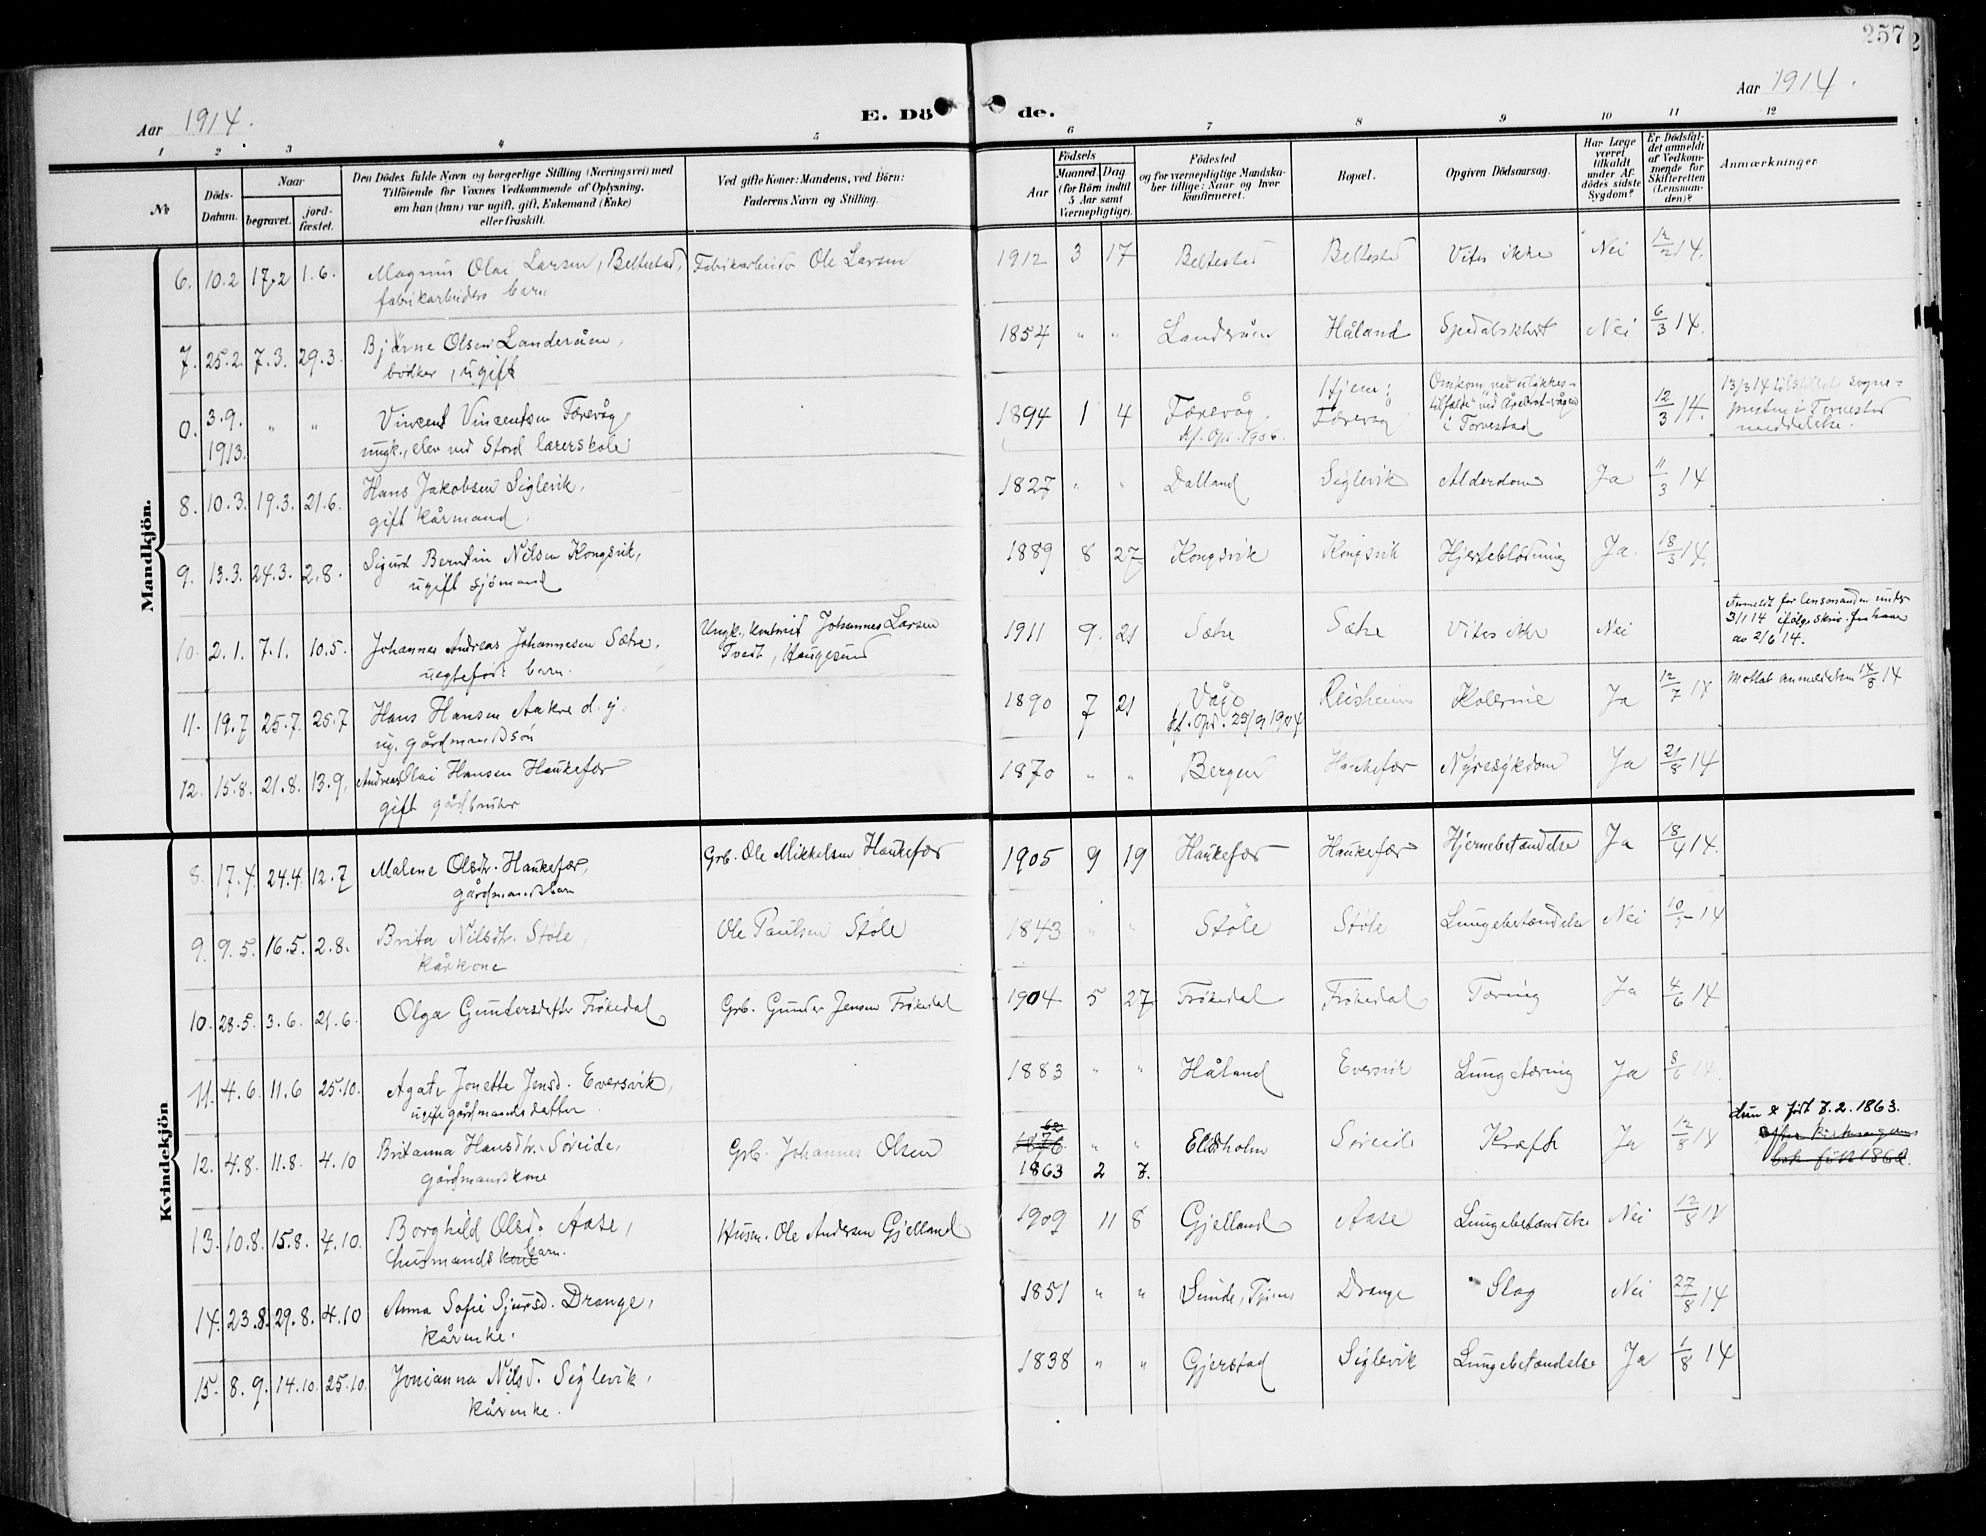 257
Aar 1914.
E. Dö de.
Aar 1914.
1 2 3 4 5 6 7 8 9 10 11 12
№
Döds-
Datum.
Naar
begravet.
jord-
fæstet.
Den Dödes fulde Navn og borgerlige Stilling (Næringsvei) med
Tilföiende for Voxnes Vedkommende af Oplysning,
om han (hun) var ugift, gift, Enkemand (Enke)
eller fraskilt.
Ved gifte Koner: Mandens, ved Börn:
Faderens Navn og Stilling.
Födsels
Aar
Maaned. Dag
(for Börn indtil
5 Aar samt
Værnepligtige).
Födested
og for værnepligtige Mandska-
ber tillige: Naar og hvor
konfirmeret.
Bopæl.
Opgiven Dödsaarsag.
Har Læge
været
tilkaldt
under Af-
dödes sidste
Sygdom?
Er Dödsfal-
det anmeldt
af Vedkom-
mende for
Skifteretten
(Lensman-
den)?
Anmærkninger
Mandkjön.
6. 10.2 17.2 1.6. Magnus Olai Larsen, Beltestad, Fabrikarbeider Ole Larsen 1912 3 17 Beltestad Beltestad Vites ikke Nei 12/2 14.
fabrikarbeiders barn
7. 25.2. 7.3. 29.3. Bjørne Olsen Landeråen, 1854 " " Landeråen Håland Spedalskhet Nei 6/3 14.
bødker, ugift
0. 3.9. 1913. " " Vincent Vincentsen Færevåg 1894 1 4 Færevåg. Hjem: Færevåg Omkom ved ulykkes- 12/3 14. 13/3 14 sogne-
ungk., elev ved Stord lærerskole kf. Opd. 1906. tilfælde ved vågen
i Torvestad meddelelse.
8. 10.3. 19.3. 21.6. Hans Jakobsen Siglevik, 1827 " " Dalland Siglevik Alderdom Ja 11/3 14
gift kårmand.
9. 13.3. 24.3. 2.8. Sigurd Berntin Nilsen Kongsvik, 1889 8 27 Kongsvik Kongsvik Hjerteblødning Ja. 18/3 14.
ugift sjömand
10. 2.1. 7.1. 10.5. Johannes Andreas Johannesen Sætre, Ungk., Johannes Larsen 1911 9. 21 Sætre Sætre Vites ikke Nei Anmeldt for lensmanden under
uegtefødt barn. Tveit, Haugesund 3/1 14 ifølge skriv. fra ham
av 2/6 14.
11. 19.7 25.7. 25.7 Hans Hansen Aakre d.y. 1890 7 21 Vågø Reisheim Ja 12/7 14 Mottat anmeldelsen 14/8 14
ug. gårdmandssön kf. Opd. 25/9 1904
12. 15.8. 21.8. 13.9. Andreas Olai Hansen Haukefær 1870 " " Bergen Haukefær Nyresykdom Ja 21/8 14
gift gårdbruker
Kvindekjön
8. 17.4. 24.4. 12.7 Malene Olsdtr. Haukefær, Grb. Ole Mikkelsen Haukefær 1905 9 19 Haukefær Haukefær Hjernebetændelse Ja 18/4 14.
gårdmandsbarn
9. 9.5. 16.5. 2.8. Brita Nilsdtr. Støle, Ole Paulsen Støle 1843 " " Støle Støle Lungebetændelse Nei 10/5 14
kårkone
10. 28.5. 3.6. 21.6. Olga Gundersdatter Frøkedal Grb. Gunder Jensen Frøkedal 1904 5 27 Frøkedal Frøkedal Tæring Ja 4/6 14
11. 4.6. 11.6 25.10. Agate Jonette Jensd. Eversvik, 1883 " " Håland Eversvik Lungetæring Ja 8/6 14.
ugift gårdmandsdatter.
12. 4.8. 11.8. 4.10 Britanna Hansdtr. Søreide, Grb. Johannes Olsen 1876 62 " " Eldholm Søreide Kræft Ja 12/8 14 Hun er født 7.2.1863.
gårdmandskone 1863 2 7. efter
bok født 1862.
13. 10.8. 15.8. 4.10. Borghild Olsd. Aase, Husm. Ole Andersen Gjelland 1909 11 8 Gjelland Aase Lungebetændelse Nei 12/8 14
husmandskone barn.
14. 23.8. 29.8. 4.10 Anna Sofie Sjursd. Drange, 1851 " " Sunde, Drange Slag Nei 27/8 14
kårenke.
15. 8.9. 14.10. 25.10. Jonianna Nilsd. Siglevik, 1838 " " Gjerstad Siglevik Lungebetændelse Ja 1/8 14
kårenke.